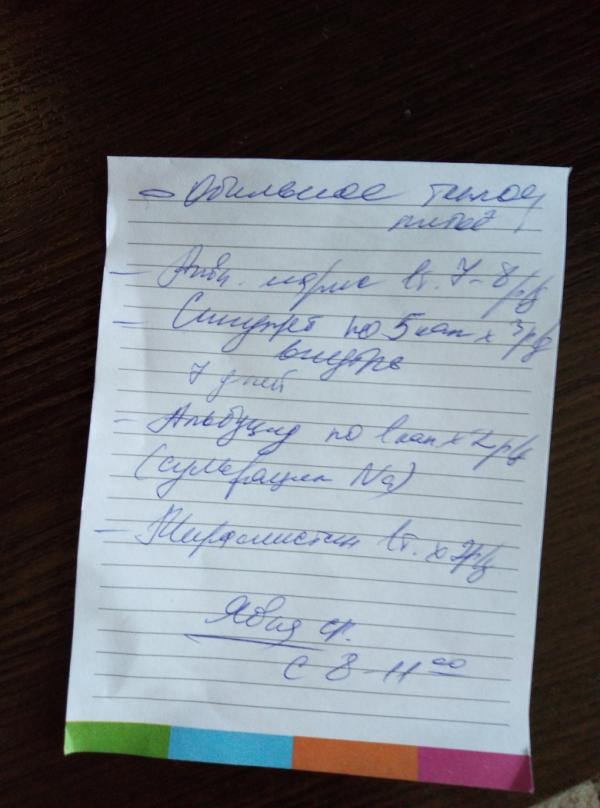 - Обильное теплое
питье
- Акв. марис вн. 7-8 р/д
- Синупрет по 5 кап х 3 р/д
внутрь
7 дней
- Альбуцид по 1 кап х 2 р/д
(сульфацил Na)
- Мирамистин х 2 р/д
Явка ср.
с 8-11 00